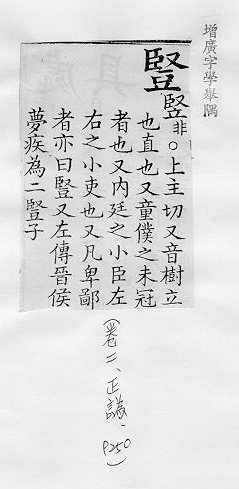 增廣字學舉隅
豎
竪非○上主切又音樹立
也直也又童僕之未冠
者也又內廷之小臣左
右之小吏也又凡卑鄙
者亦曰豎又左傳晉侯
夢疾為二豎子
(卷二、正譌、P250)